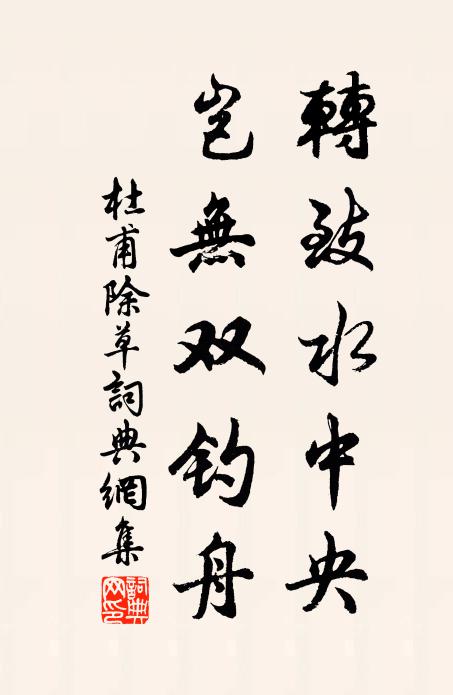 轉致水中央
豈無双钓舟
杜甫除草詞典網集
詞典网印